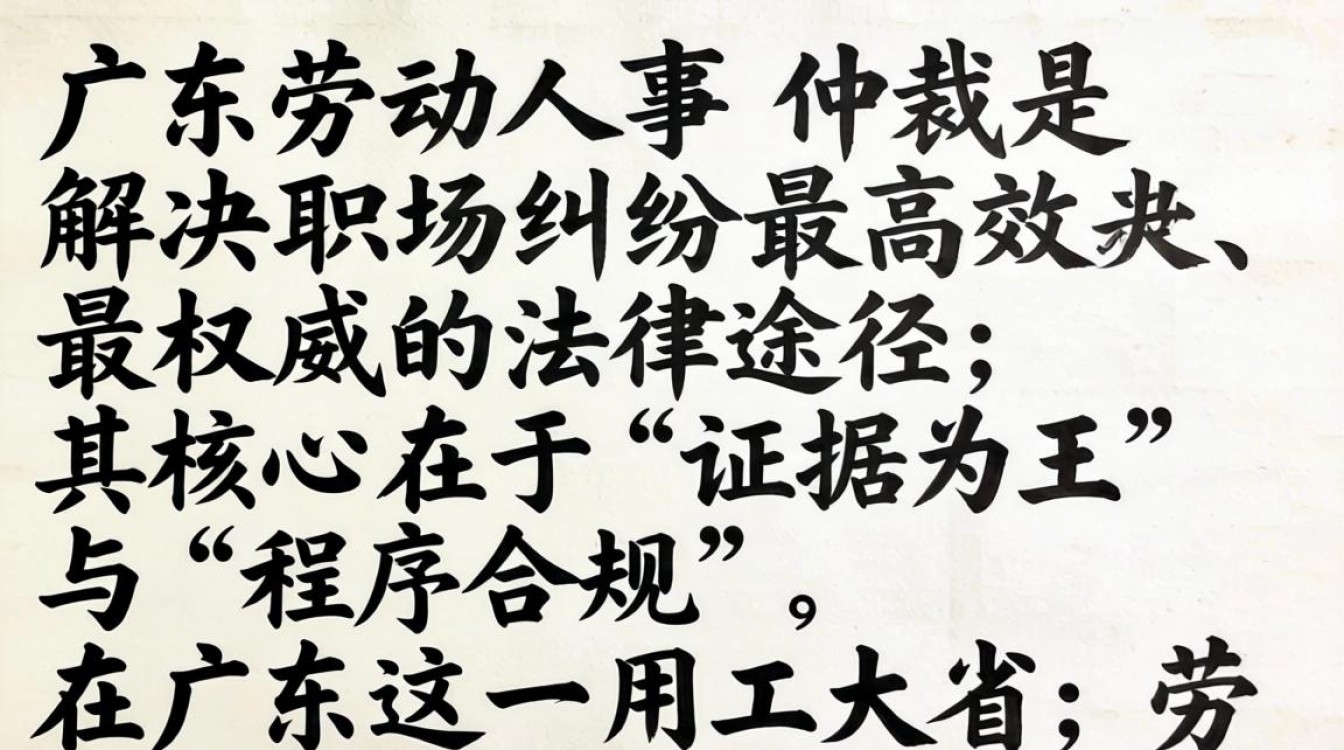 广东劳动人事 仲裁是
解决职场纠纷最高效、
最权威的法律途径；
其核心在于“证据为王”
与“程序合规”，
在广东这一用工大省；劳